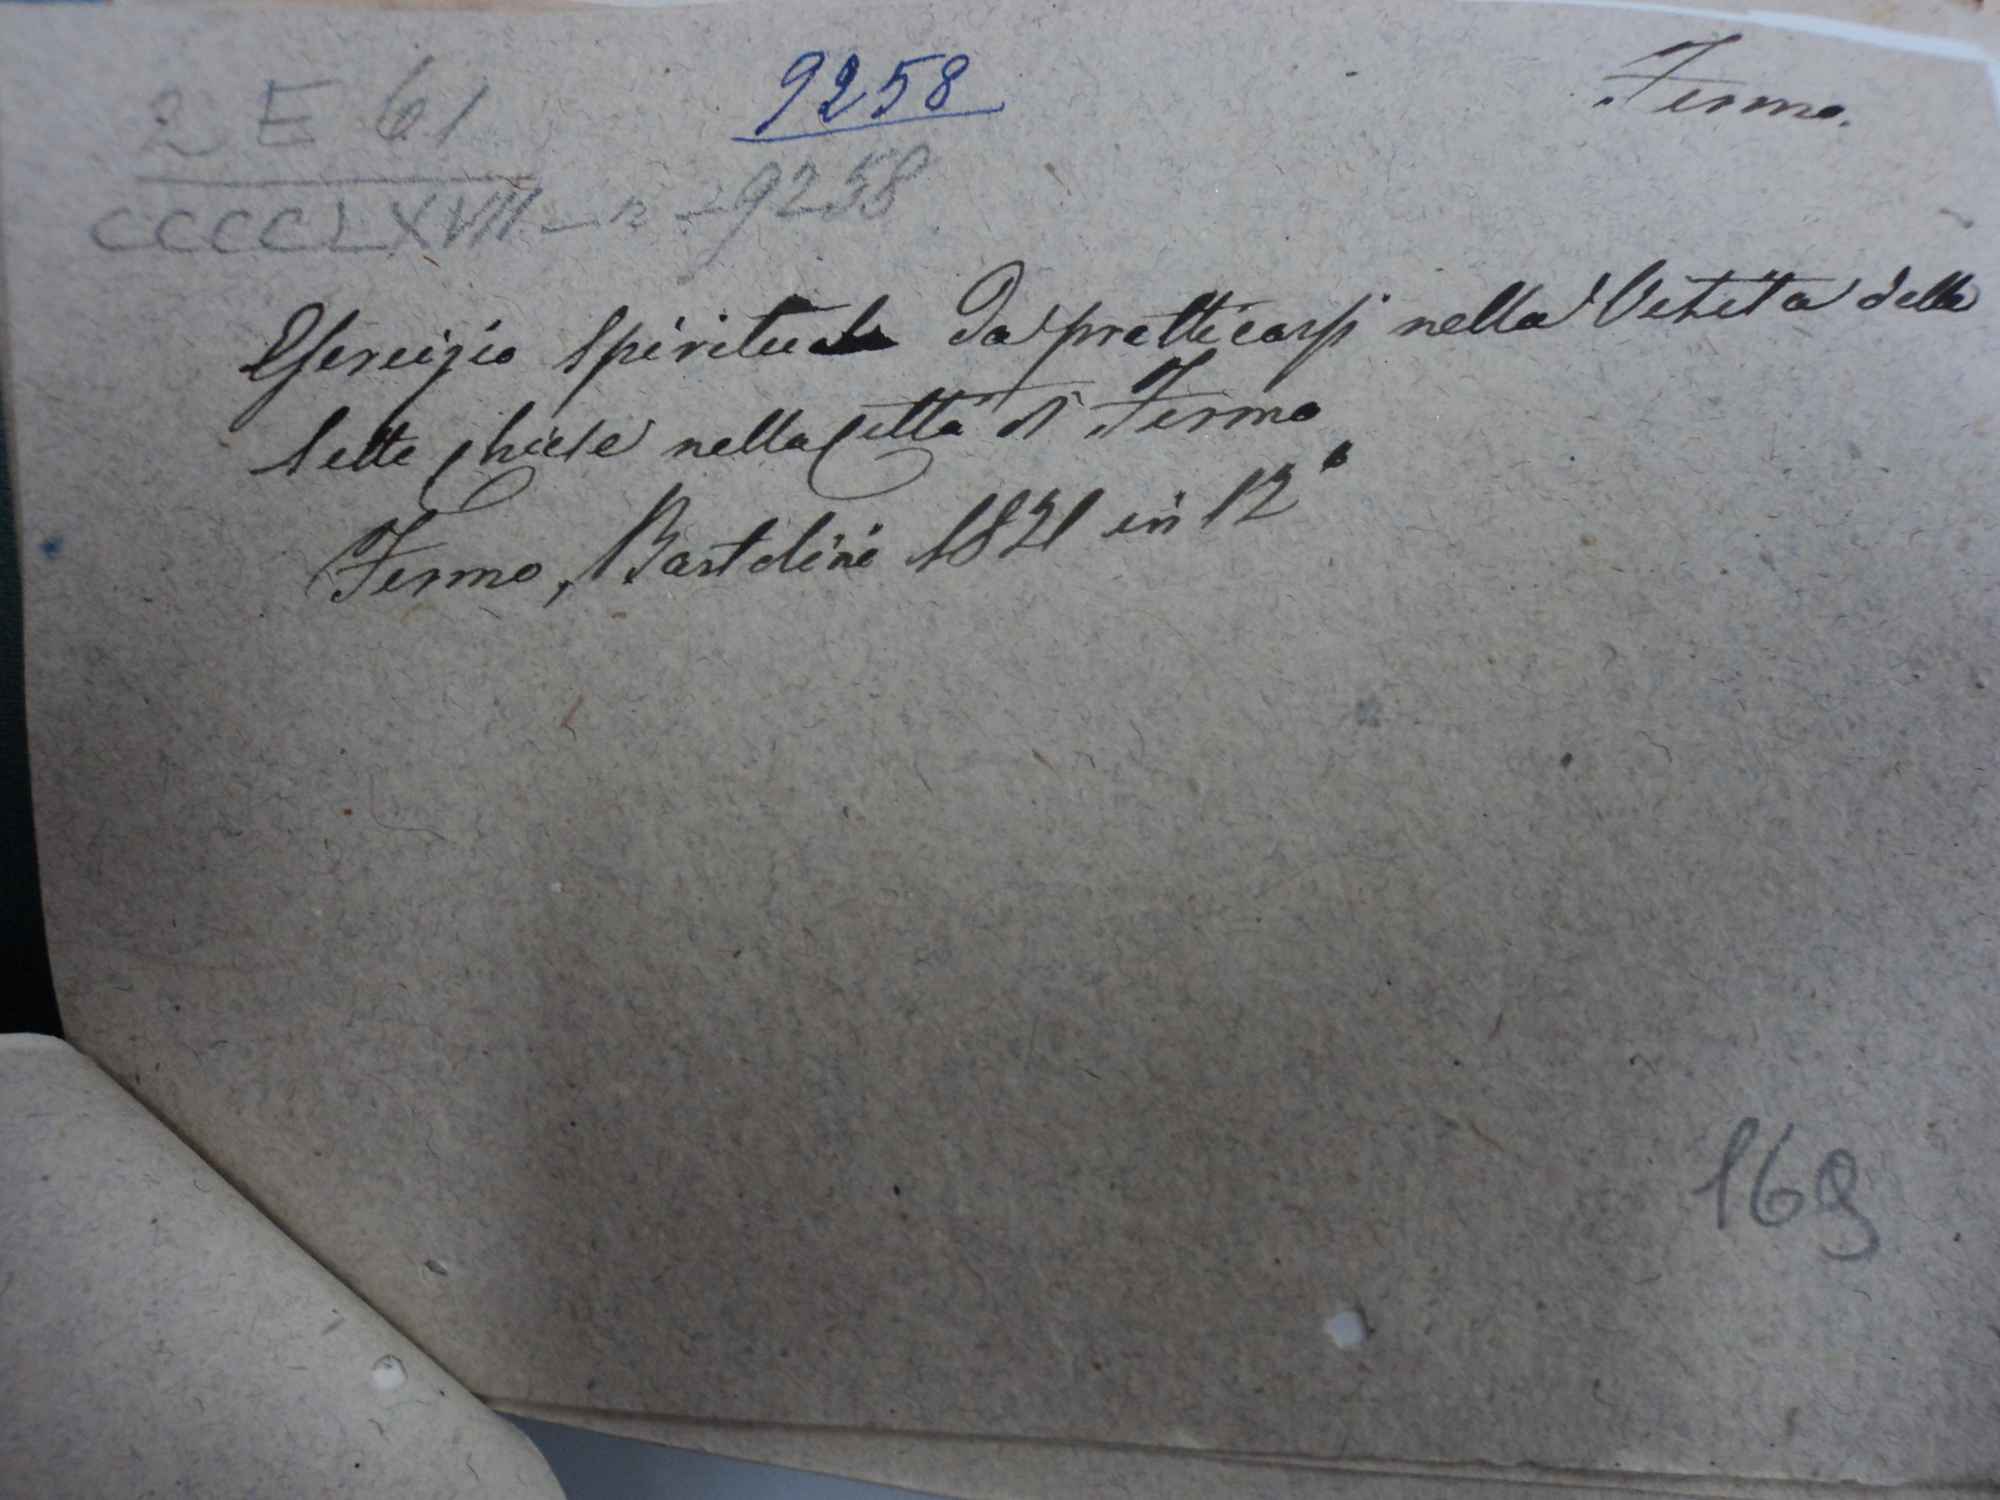 2 E 61
9258
Fermo.
CCCCLXVII - n - 9258
Esercizio Spirituale da pratticarsi nella Visita delle
Sette Chiese nella Città di Fermo
Fermo, Bartolini 1821 in 12°
169